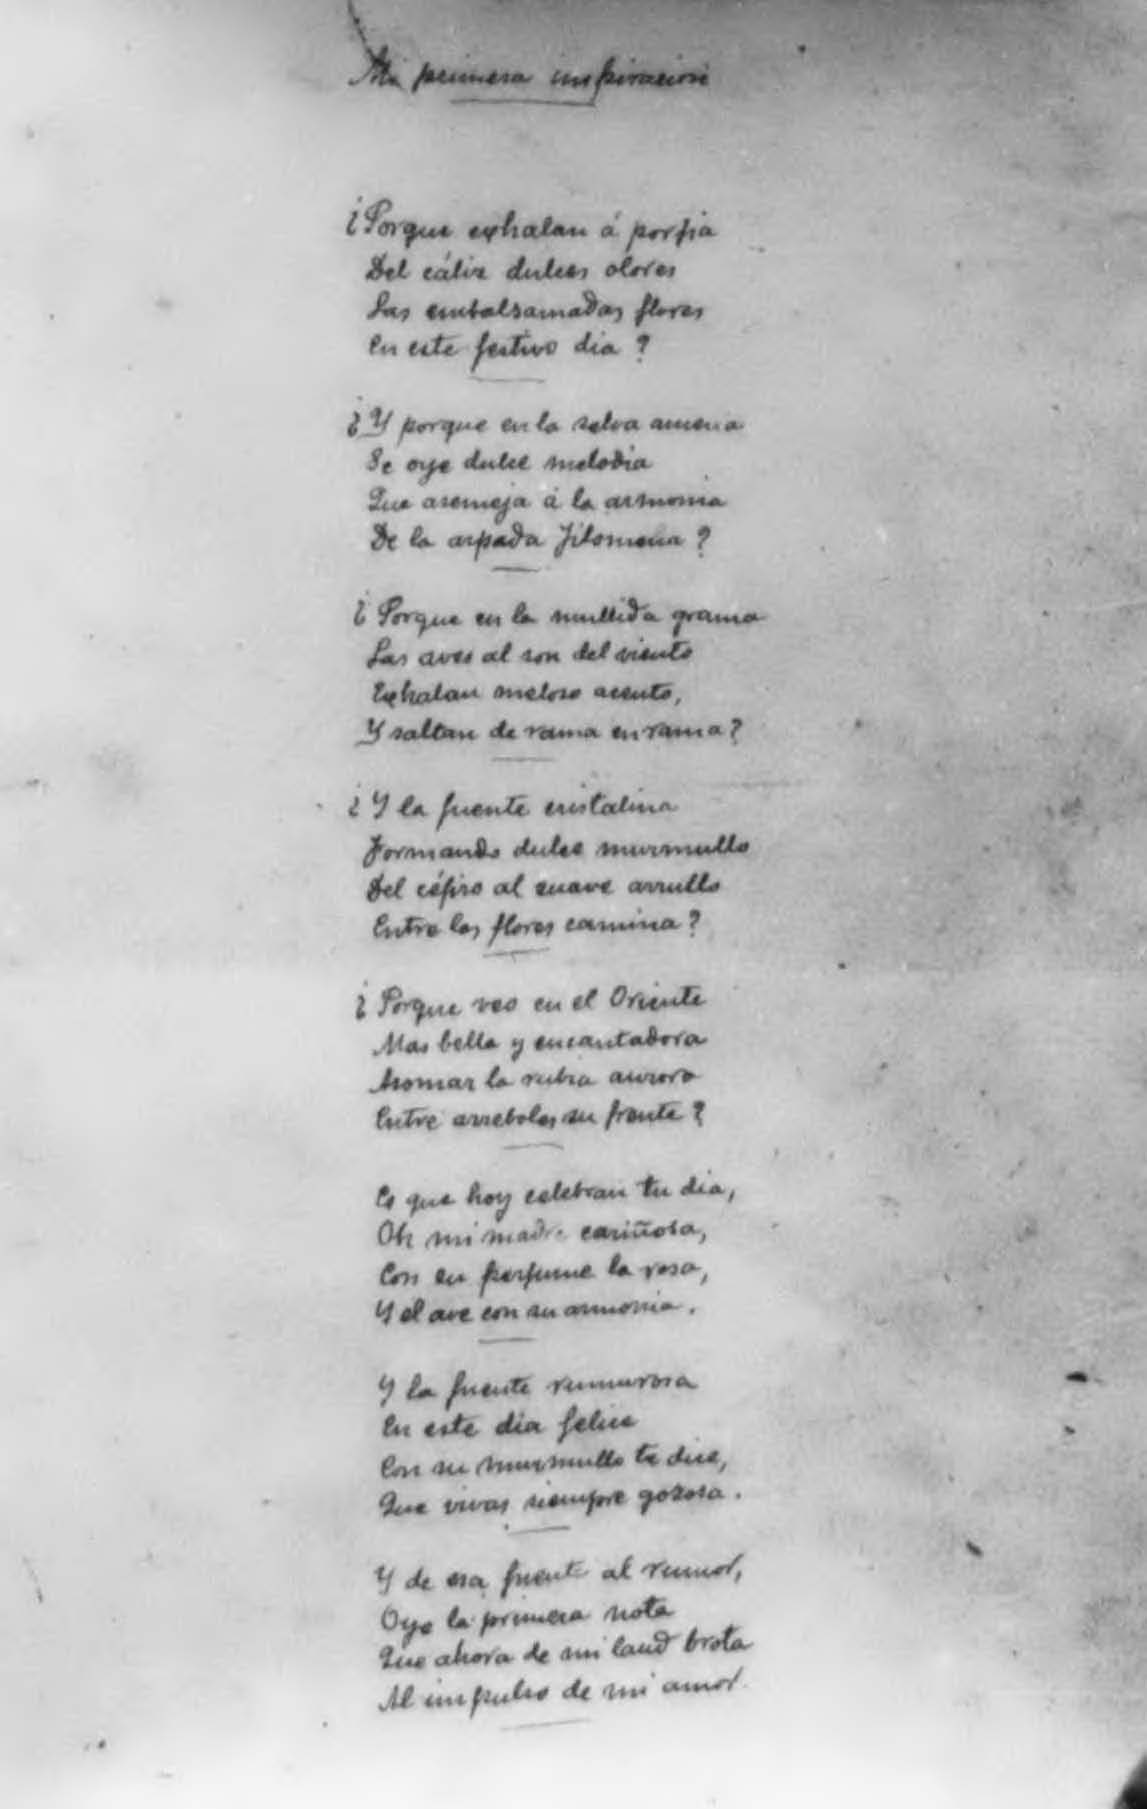 Mi primera inspiracion
¿Porque exhalan á porfia
Del cáliz dulces olores
Las embalsamadas flores
En este festivo dia?
¿Y porque en la selva amena
Se oye dulce melodia
Que asemeja á la armonia
De la arpada Filomena?
¿Porque en la mullida grama
Las aves al son del viento
Exhalan meloso acento,
Y saltan de rama en rama?
¿Y la fuente cristalina
Formando dulce murmullo
Del céfiro al suave arrullo
Entre las flores camina?
¿Porque veo en el Oriente
Mas bella y encantadora
Asomar la rubia aurora
Entre arreboles su frente?
Es que hoy celebran tu dia,
Oh mi madre cariñosa,
Con su perfume la rosa,
Y el ave con su armonia.
Y la fuente rumurosa
En este dia felice
Con su murmullo te dice,
Que vivas siempre gozosa.
Y de esa fuente al rumor,
Oye la primera nota
Que ahora de mi laud brota
Al impulso de mi amor.